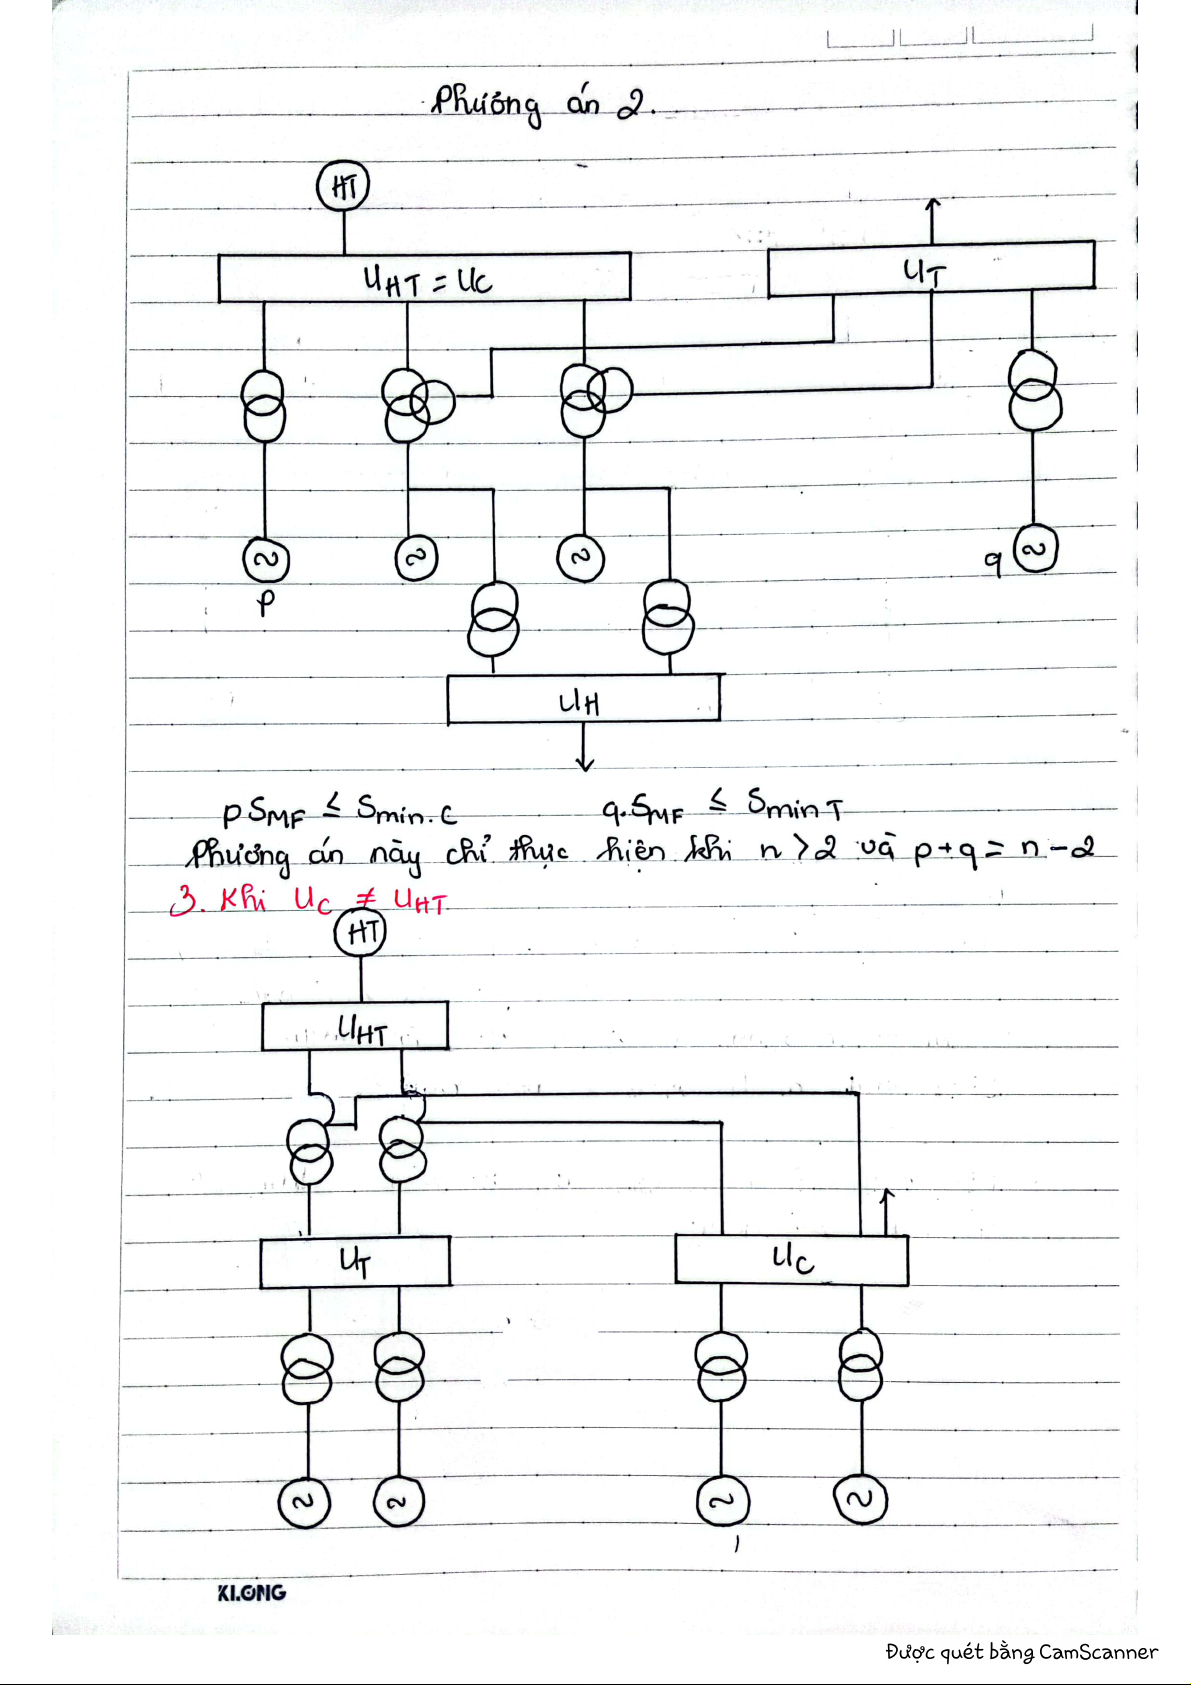 Phương án 2.
HT
U_HT = U_C
U_T
~
~
~
q ~
p
U_H
pS_MF ≤ S_min.C q.S_MF ≤ S_min T
Phương án này chỉ thực hiện khi n > 2 và p + q = n - 2
3. Khi U_C ≠ U_HT
HT
U_HT
U_T
U_C
~
~
~
~
KLONG
Được quét bằng CamScanner